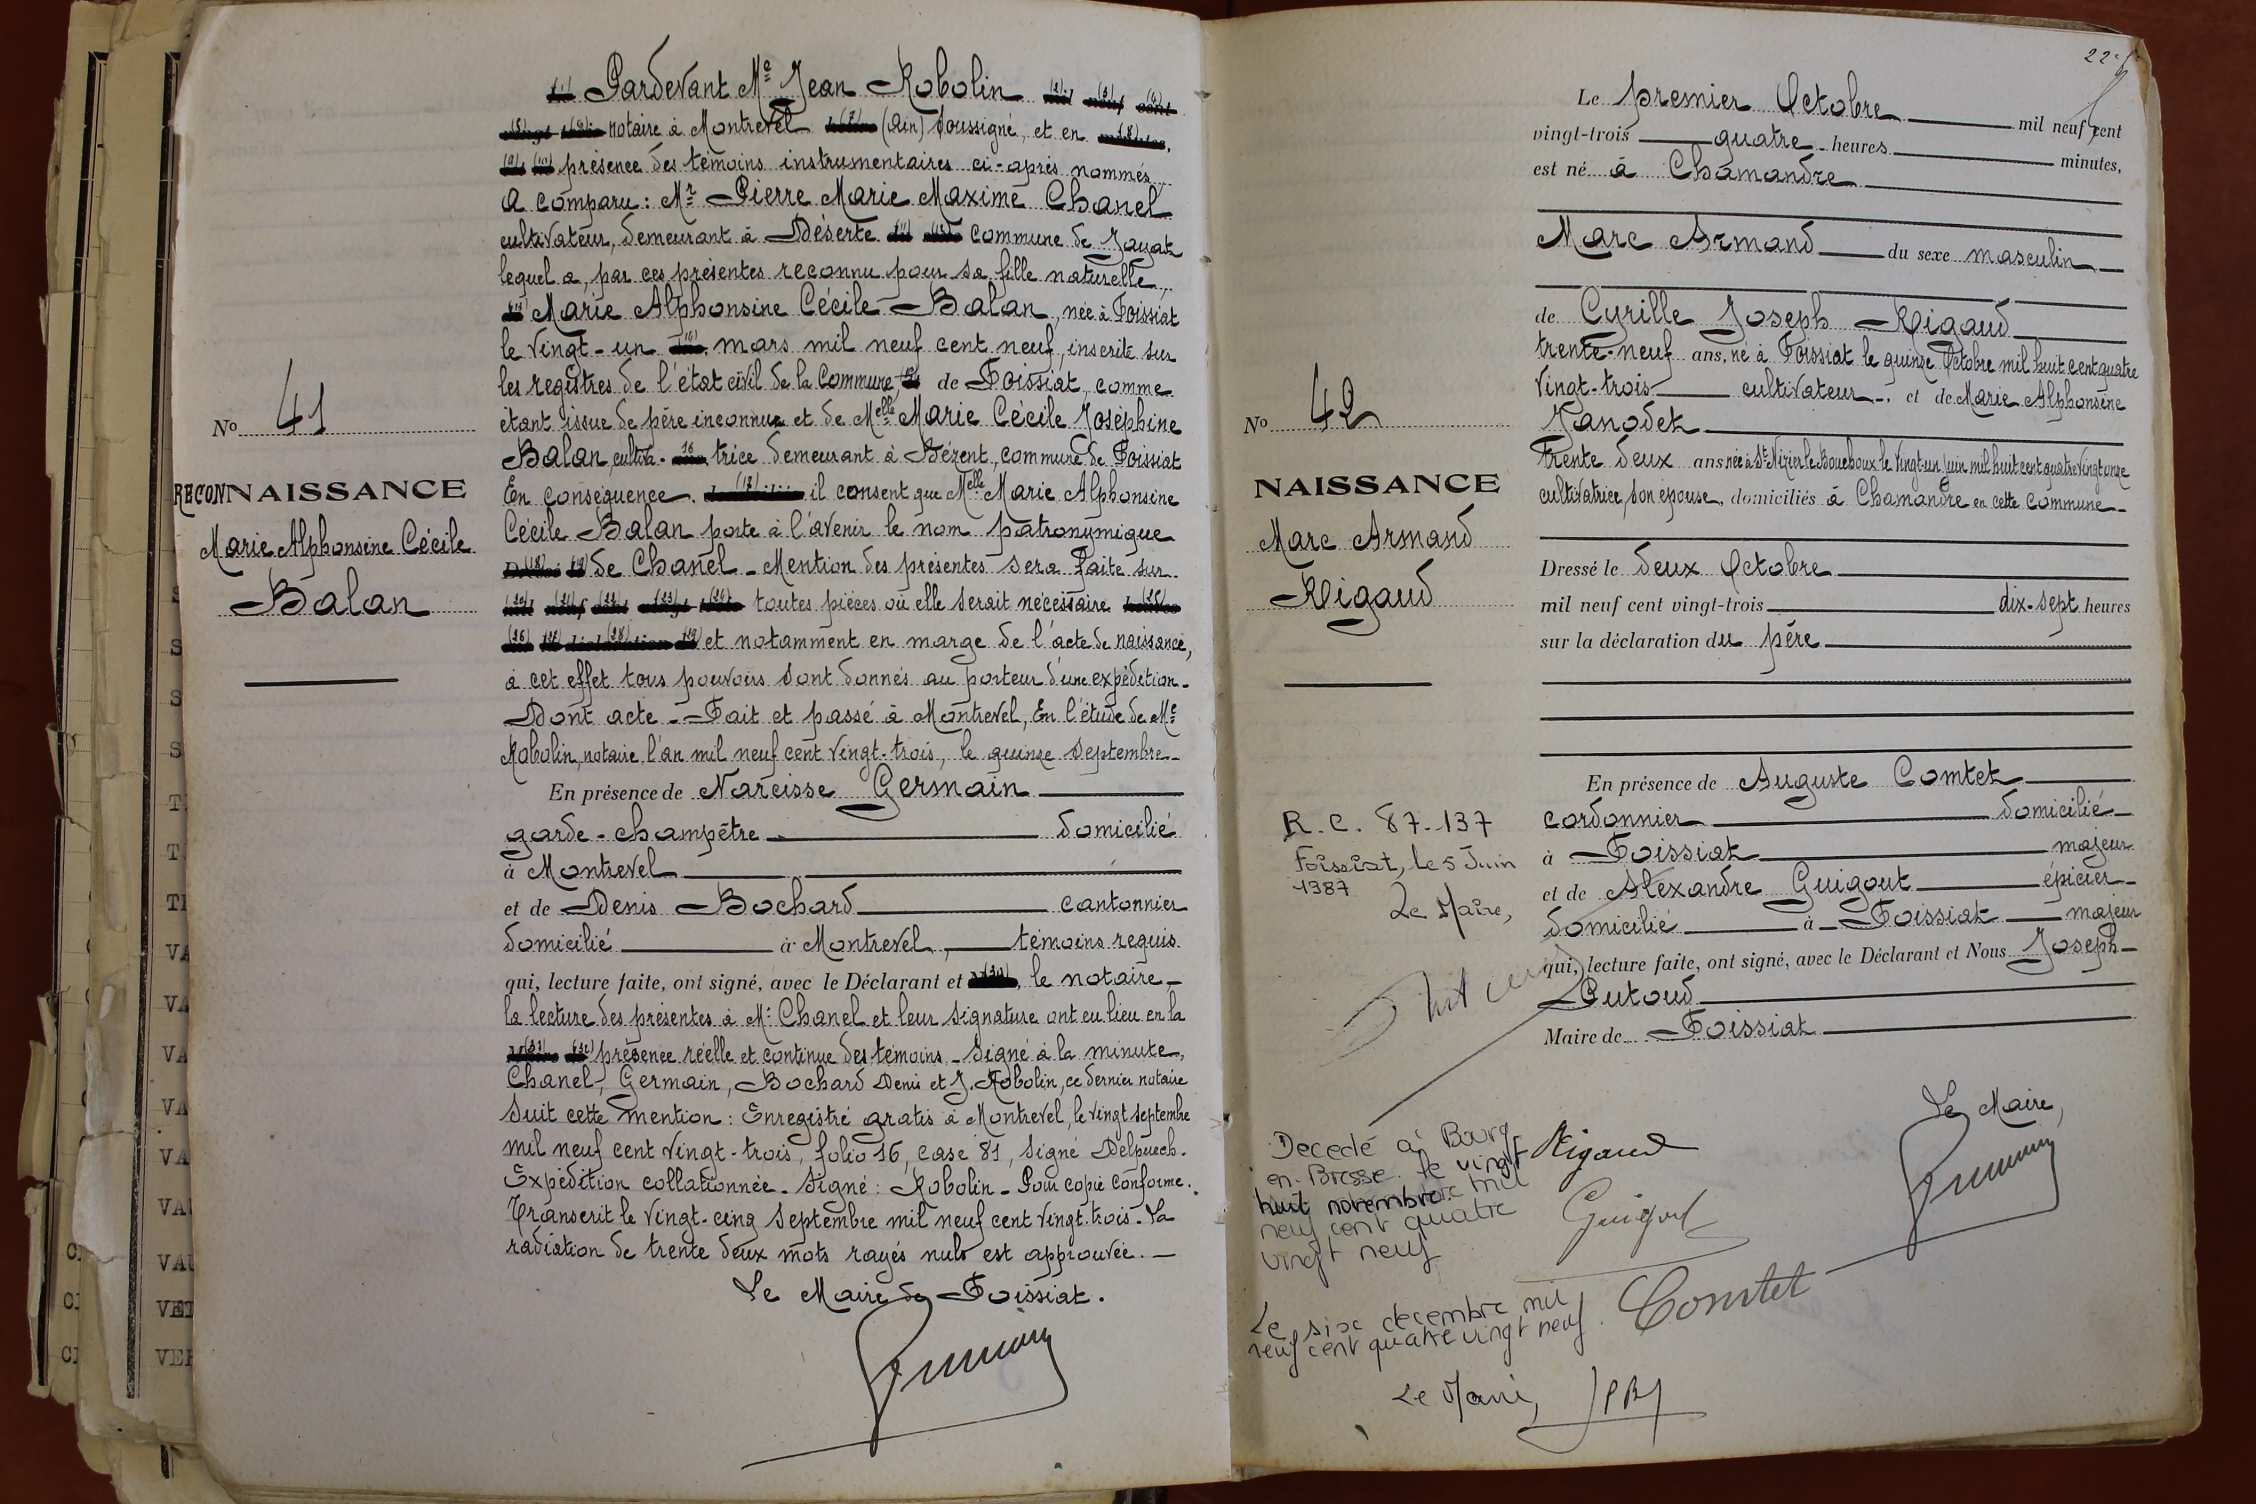 Pardevant Me Jean Robolin
notaire à Montrevel (Ain) soussigné, et en
présence des témoins instrumentaires ci-après nommés
A comparu : Mr Pierre Marie Maxime Chanel
cultivateur, demeurant à Déserte commune de Jayat
lequel a, par ces présentes reconnu pour sa fille naturelle,
Marie Alphonsine Cécile Balan, née à Foissiat
le vingt-un mars mil neuf cent neuf, inscrite sur
les registres de l'état civil de la Commune de Foissiat, comme
étant issue de père inconnu et de Melle Marie Cécile Joséphine
Balan, cultiva-trice demeurant à Bézent, commune de Foissiat
En conséquence. il consent que Melle Marie Alphonsine
Cécile Balan porte à l'avenir le nom patronymique
de Chanel - Mention des présentes sera faite sur
toutes pièces où elle serait nécessaire
et notamment en marge de l'acte de naissance,
à cet effet tous pouvoirs sont donnés au porteur d'une expédition.
Dont acte - Fait et passé à Montrevel, En l'étude de Me
Robolin, notaire l'an mil neuf cent vingt-trois, le quinze septembre
En présence de Narcisse Germain
garde-champêtre domicilié
à Montrevel
et de Denis Bochard cantonnier
domicilié à Montrevel, témoins requis
qui, lecture faite, ont signé, avec le Déclarant et le notaire
la lecture des présentes à Mr Chanel et leur signature ont eu lieu en la
présence réelle et continue des témoins - Signé à la minute,
Chanel, Germain, Bochard Denis et J. Robolin, ce dernier notaire
Suit cette mention : Enregistré gratis à Montrevel, le vingt septembre
mil neuf cent vingt-trois, folio 16, case 81, signé Delpuech.
Expédition collationnée. Signé : Robolin - Pour copie conforme.
Transcrit le vingt-cinq septembre mil neuf cent vingt-trois - La
radiation de trente deux mots rayés nuls est approuvée.
Le Maire de Foissiat.
No 41
RECONNAISSANCE
Marie Alphonsine Cécile
Balan
Le premier Octobre mil neuf cent
vingt-trois quatre heures minutes,
est né à Chamandre
Marc Armand du sexe masculin
de Cyrille Joseph Rigaud
trente-neuf ans, né à Foissiat le quinze Octobre mil huit cent quatre
vingt-trois cultivateur, et de Marie Alphonsine
Janodet
trente deux ans née à St Nizier le Bouchoux le vingt-un juin mil huit cent quatre vingt onze
cultivatrice, son épouse, domiciliés à Chamandre en cette commune
Dressé le deux Octobre
mil neuf cent vingt-trois dix-sept heures
sur la déclaration du père
En présence de Auguste Comtet
cordonnier domicilié
à Foissiat majeur
et de Alexandre Guigout épicier
domicilié à Foissiat majeur
qui, lecture faite, ont signé, avec le Déclarant et Nous Joseph
Putoud
Maire de Foissiat
Le Maire,
Rigaud
Guigout
Comtet
No 42
NAISSANCE
Marc Armand
Rigaud
R.C. 87-137
Foissiat, le 5 Juin
1987
Le Maire,
Decedé à Bourg
en-Bresse le vingt
huit novembre mil
neuf cent quatre
vingt neuf
Le six decembre mil
neuf cent quatre vingt neuf.
Le Maire,